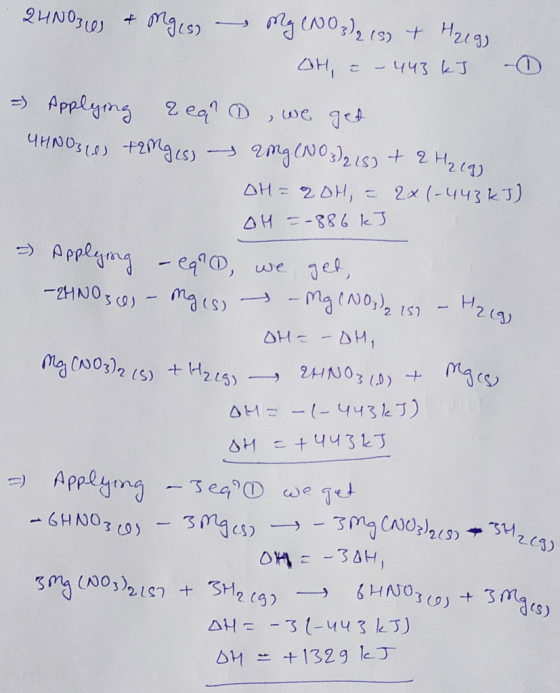 2HNO₃(l) + Mg(s) ⟶ Mg(NO₃)₂(s) + H₂(g)
ΔH₁ = -443 kJ -①
⇒ Applying 2eqⁿ①, we get
4HNO₃(l) +2Mg(s) ⟶ 2Mg(NO₃)₂(s) + 2H₂(g)
ΔH = 2ΔH₁ = 2×(-443kJ)
ΔH = -886 kJ
⇒ Applying -eqⁿ①, we get,
-2HNO₃(l) - Mg(s) ⟶ -Mg(NO₃)₂(s) - H₂(g)
ΔH = -ΔH₁
Mg(NO₃)₂(s) + H₂(g) ⟶ 2HNO₃(l) + Mg(s)
ΔH = -(-443kJ)
ΔH = +443kJ
⇒ Applying -3eqⁿ① we get
-6HNO₃(l) - 3Mg(s) ⟶ -3Mg(NO₃)₂(s) - 3H₂(g)
ΔH = -3ΔH₁
3Mg(NO₃)₂(s) + 3H₂(g) ⟶ 6HNO₃(l) + 3Mg(s)
ΔH = -3(-443 kJ)
ΔH = +1329 kJ